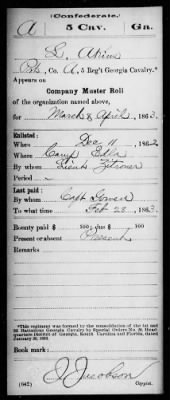 (Confederate.)
A 5 Cav. Ga.
L. Akins
Pvt., Co. A, 5 Reg't Georgia Cavalry.*
Appears on
Company Muster Roll
of the organization named above,
for March & April, 1863.
Enlisted:
When Dec 11, 1862
Where Camp
By whom Lieut
Period
Last paid:
By whom Capt Gowen
To what time Feb 28, 1863.
Bounty paid $ 100; due $ 100
Present or absent Present
Remarks:
*This regiment was formed by the consolidation of the 1st and 2d Battalions Georgia Cavalry by Special Orders No. 20, Headquarters District of Georgia, South Carolina and Florida, dated January 20, 1863.
Book mark:
J. Jacobson
(642) Copyist.